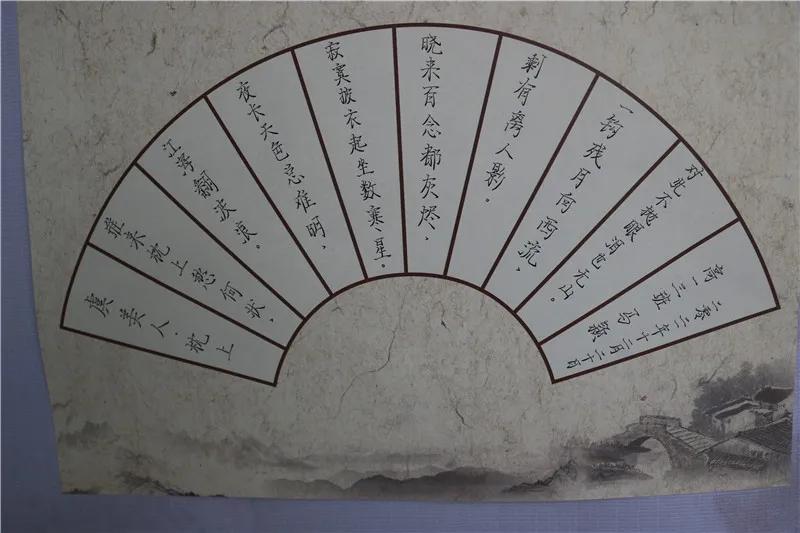 虞美人·枕上
堆来枕上愁何状，
江海翻波浪。
夜长天色总难明，
寂寞披衣起坐数寒星。
晓来百念都灰烬，
剩有离人影。
一钩残月向西流，
对此不抛眼泪也无由。
高一三班 马颖
二零二二年十二月二十日